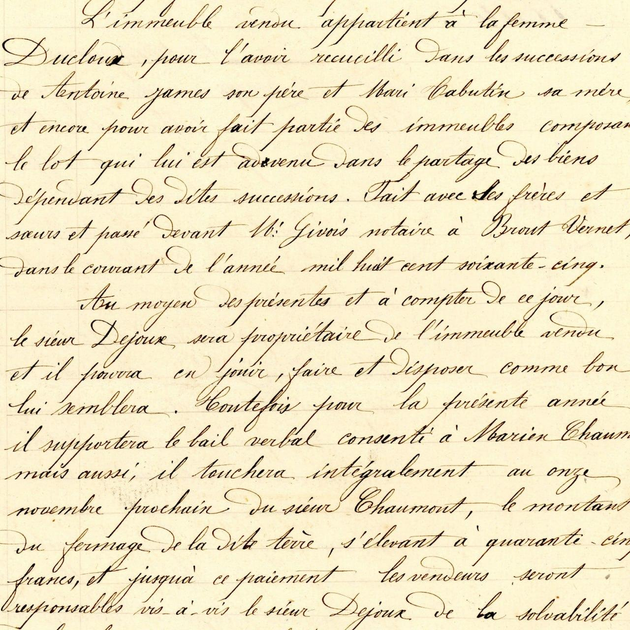 L'immeuble vendu appartient à la femme —
Ducloux, pour l'avoir recueilli dans les successions
de Antoine James son père et Mari Cabutin sa mère
et encore pour avoir fait partie des immeubles composan
le lot qui lui est advenu dans le partage des biens
dépendant des dites successions. Fait avec les frères et
sœurs et passé devant Mᵉ Givois notaire à Brout Vernet,
dans le courant de l'année mil huit cent soixante-cinq.
Au moyen des présentes et à compter de ce jour,
le sieur Dejoux sera propriétaire de l'immeuble vendu
et il pourra en jouir, faire et disposer comme bon
lui semblera. Toutefois pour la présente année
il supportera le bail verbal consenti à Marien Chaum
mais aussi, il touchera intégralement au onze
novembre prochain du sieur Chaumont, le montant
du fermage de la dite terre, s'élevant à quarante-cinq
francs, et jusqu'à ce paiement les vendeurs seront
responsables vis-à-vis le sieur Dejoux de la solvabilité